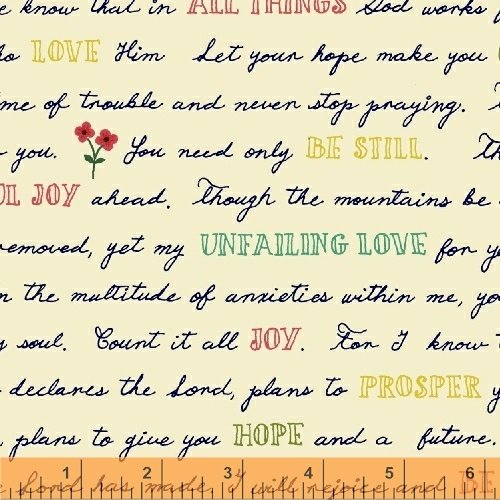 e know that in ALL THINGS God works
ho LOVE Him Let your hope make you
me of trouble and never stop praying.
you. You need only BE STILL. Th
UL JOY ahead. Though the mountains be
removed, yet my UNFAILING LOVE for yo
n the multitude of anxieties within me, yo
y soul. Count it all JOY. For I know t
declares the Lord, plans to PROSPER y
, plans to give you HOPE and a future.
1 2 3 4 5 6
e Lord has made. I will rejoice and BE